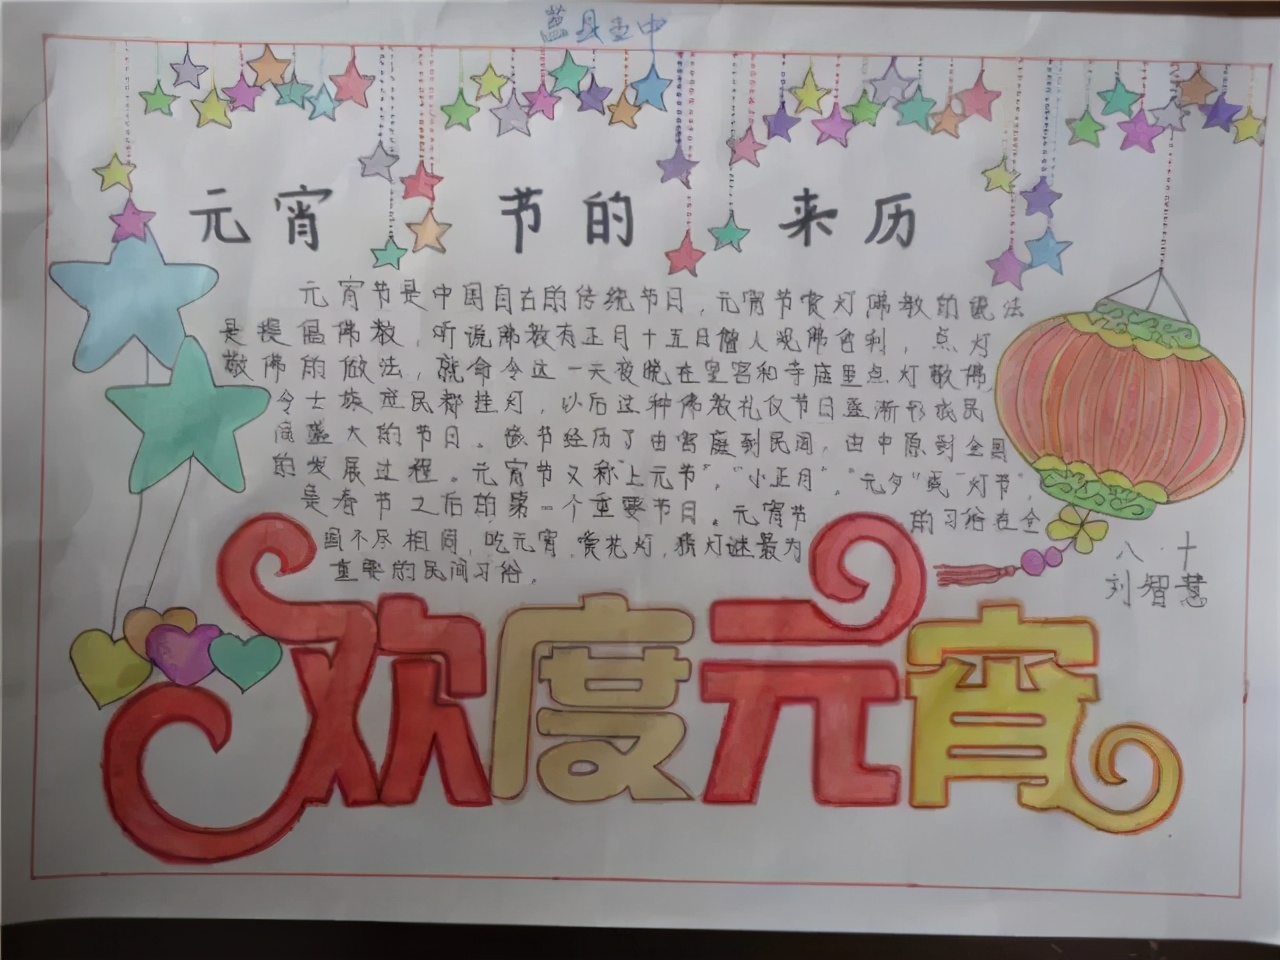 蓝县五中
元宵节的来历
元宵节是中国自古的传统节日，元宵节赏灯佛教的说法
是提倡佛教，听说佛教有正月十五日僧人观佛舍利，点灯
敬佛的做法，就命令这一天夜晚在皇宫和寺庙里点灯敬佛,
令士族庶民都挂灯，以后这种佛教礼仪节日逐渐形成民
间盛大的节日。该节经历了由宫庭到民间，由中原到全国
的发展过程。元宵节又称"上元节"，"小正月"。元夕"或"灯节",
是春节之后的第一个重要节日。元宵节的习俗在全
国不尽相同，吃元宵、赏花灯，猜灯谜最为
重要的民间习俗。
八·十
刘智慧
欢度元宵